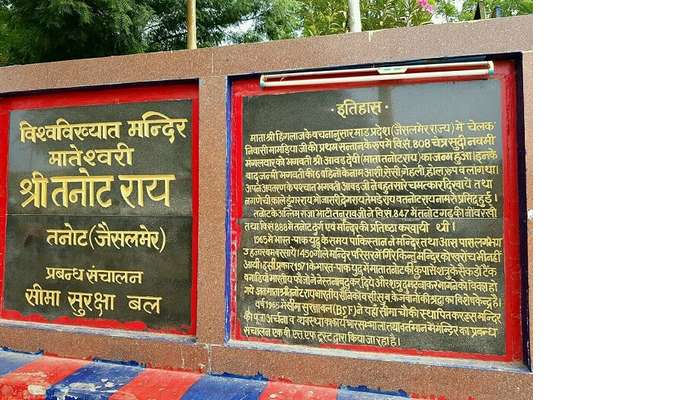 विश्वविख्यात मन्दिर
मातेश्वरी
श्री तनोट राय
तनोट (जैसलमेर)
प्रबन्ध संचालन
सीमा सुरक्षा बल
इतिहास
माता श्री हिंगलाज के वचनानुसार माड़ प्रदेश (जैसलमेर राज्य) में चेलक
निवासी मामड़िया जी की प्रथम सन्तान के रूप में वि.सं. 808 चैत्र सुदी नवमी
मंगलवार को भगवती श्री आवड़ देवी (माता तनोटराय) का जन्म हुआ। इनके
बाद जन्मी भगवती की 6 बहिनों के नाम आशी, सेसी, गेहली, होल, रूप व लांग था।
अपने अवतरण के पश्चात भगवती आवड़ जी ने बहुत सारे चमत्कार दिखाये तथा
नगणेची काले डूंगर राय भोजासरी देगराय तेमड़े राय व तनोट राय नाम से प्रसिद्ध हुई।
तनोट के अन्तिम राजा भाटी तनुराव जी ने वि.सं. 847 में तनोट गढ़ की नींव रखी
तथा वि.सं 888 में तनोट दुर्ग एवं मन्दिर की प्रतिष्ठा करवायी थी।
1965 में भारत-पाक युद्ध के समय पाकिस्तान ने मन्दिर तथा आस पास लगभग
3 हजार बम बरसाये। 450 गोले मन्दिर परिसर में गिरे किन्तु मन्दिर को खरोंच भी नहीं
आयी। इसी प्रकार 1971 के भारत-पाक युद्ध में माता तनोट की कृपा से शत्रु के सैकड़ों टैंक
व गाड़ियां भारतीय फौजों ने नेस्तनाबूद कर दिये और शत्रु दुम दबाकर भागने को विवश हो
गये अतः माता श्री तनोट राय भारतीय सैनिकों व सी.सु.ब. के जवानों की श्रद्धा का विशेष केन्द्र है।
वर्ष 1965 में सीमा सुरक्षा बल (BSF) ने यहाँ सीमा चौकी स्थापित कर इस मन्दिर
की पूजा अर्चना व व्यवस्था का कार्यभार सम्भाला तथा वर्तमान में मन्दिर का प्रबन्ध
संचालन एक बी. एस. एफ ट्रस्ट द्वारा किया जा रहा है।